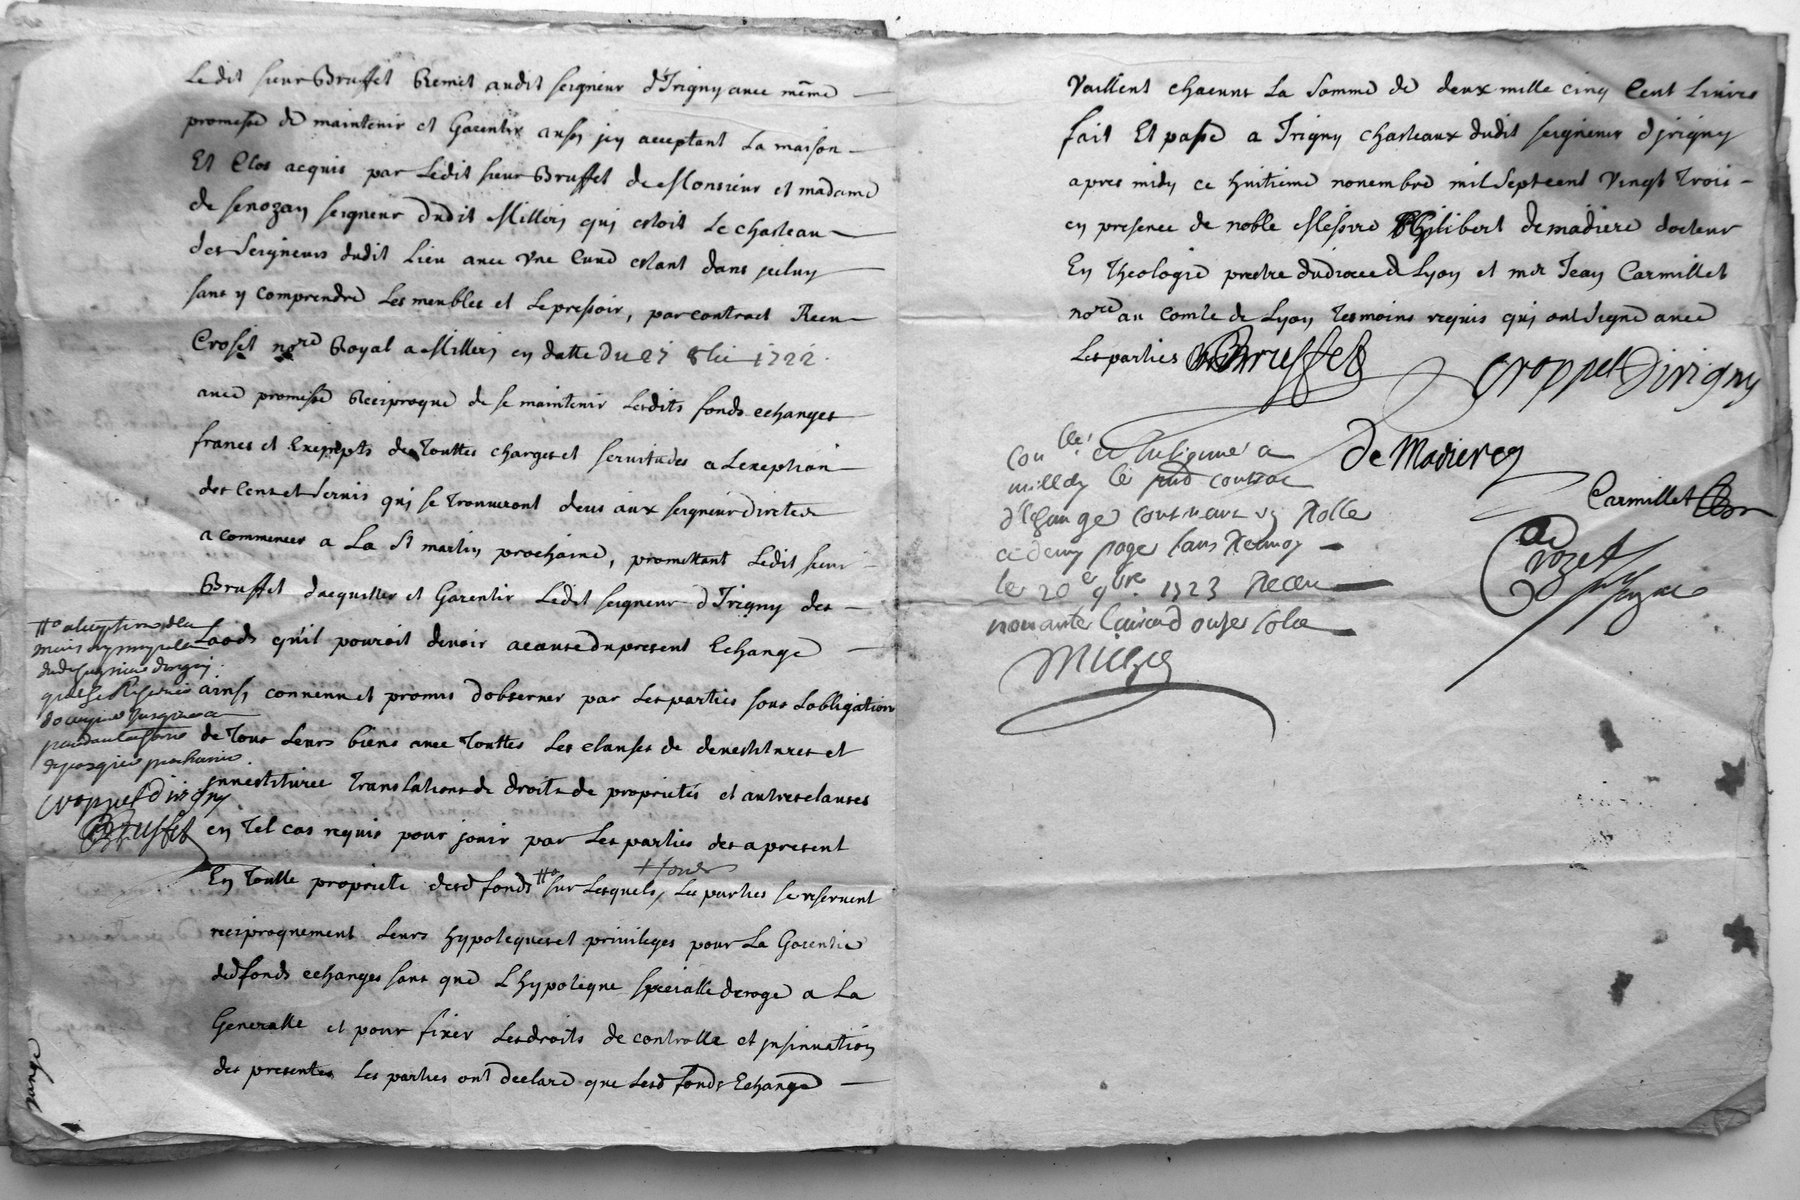 Ledit sieur Bruffet Remet audit seigneur d'Irigny avec même
promesse de maintenir et Garentir aussy icy acceptant La maison
Et Clos acquis par Ledit sieur Bruffet de Monsieur et madame
de senozan seigneur dudit Millery qui estoit Le chasteau
des Seigneurs dudit Lieu avec vne Cuue estant dans jceluy
sans y comprendre Les meubles et Le pressoir, par contract Receu
Croset nore Royal a Millery en datte du 27 8bre 1722
avec promesse Reciproque de se maintenir Lesdits fonds echanges
francs et Exempts de Touttes charges et servitudes a Lexeption
des Cens et Servis qui se trouveront deus aux seigneurs directes
a commencer a La St martin prochaine, promettant Ledit sieur
Bruffet dacquitter et Garentir Ledit seigneur d'Irigny des
Laods qu'il pouroit devoir a cause du present Echange
ainsy convenu et promis d'observer par Les parties sous Lobligation
de Tous Leurs biens avec Touttes Les clauses de devestitures et
jnvestitures Translations de droits de proprietés et autres clauses
en Tel cas requis pour jouir par Les parties des a present
En Toutte proprieté desd fonds sur Lesquels Les parties se reservent
reciproquement Leurs hypoteques et privileges pour La Garentie
desd fonds echanges sans que L'hypoteque specialle deroge a La
Generalle et pour fixer Les droits de controlle et jnsinuation
des presentes Les parties ont declaré que Lesd fonds Echangé
a lexeption de la
Croppet d'irigny
Bruffet
Vaillent chacuns La Somme de deux mille cinq Cent Livres
fait Et passé a Irigny chasteaux dudit seigneur d'jrigny
apres midy ce huitieme novembre mil Sept cent Vingt Trois
en presence de noble Messire Philibert demadiere docteur
En Theologie prestre du diocese de Lyon et mer Jean Carmillet
nore au Comté de Lyon Tesmoins requis qui ont Signé avec
Les parties Bruffet
Croppet Dirigny
De Madieres
Carmillet
Crozet
Conllé et Insinué a
millery le susd contrat
d'Echange contenant un Rolle
et demy page sans Renvoy
le 20e 9bre 1723 Receu
nonante Cinq d ouse sols